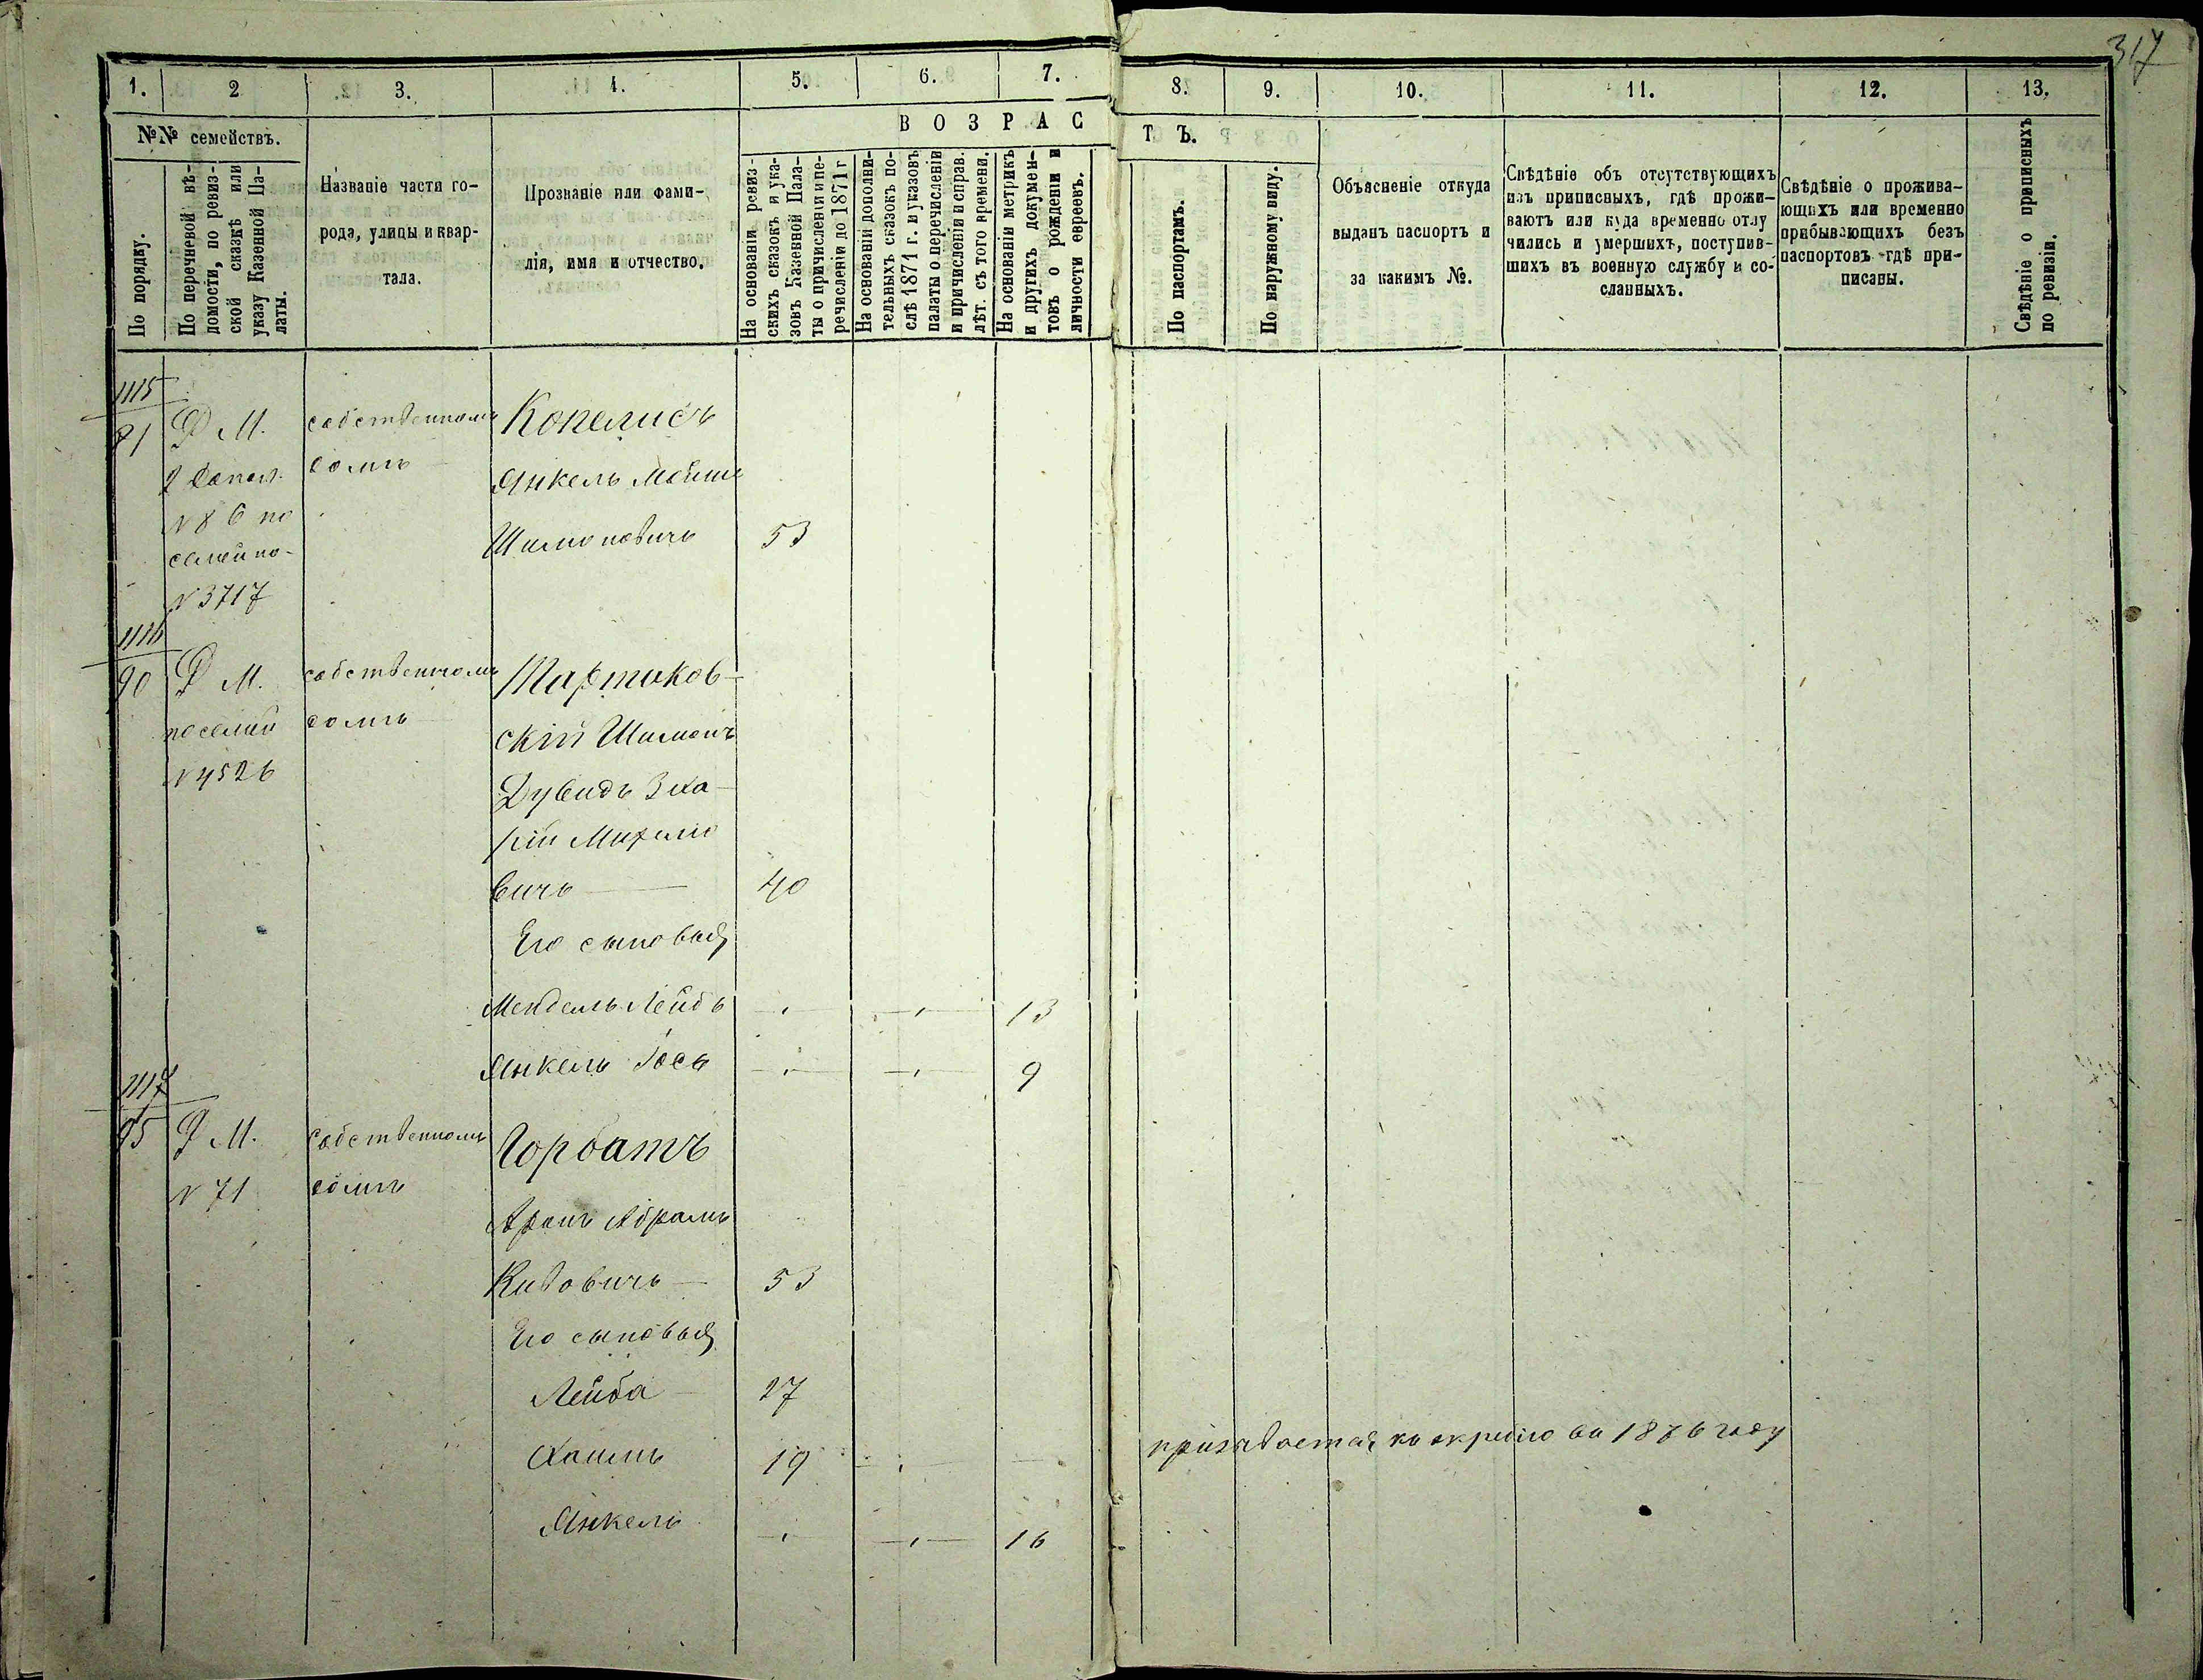 317
1. 2 3. 4. 5. 6. 7. 8. 9. 10. 11. 12. 13.
№№ семействъ.
По порядку.
По перечневой вѣ-
домости, по ревиз-
ской сказкѣ или
указу Казенной Па-
латы.
Названіе части го-
рода, улицы и квар-
тала.
Прозваніе или фами-
лія, имя и отчество.
ВОЗРАСТЪ.
На основаніи ревиз-
скихъ сказокъ и ука-
зовъ Казенной Пала-
ты о причисленіи и пе-
речисленіи до 1871 г
На основаніи дополни-
тельныхъ сказокъ по-
слѣ 1871 г. и указовъ
палаты о перечисленіи
и причисленіи и справ.
лѣт. съ того времени.
На основаніи метрикъ
и другихъ докумен-
товъ о рожденіи и
личности евреевъ.
По паспортамъ.
По наружному виду.
Объясненіе откуда
выданъ паспортъ и
за какимъ №.
Свѣдѣніе объ отсутствующихъ
изъ приписныхъ, гдѣ прожи-
ваютъ или куда временно отлу
чились и умершихъ, поступив-
шихъ въ военную службу и со-
сланныхъ.
Свѣдѣніе о прожива-
ющихъ или временно
прибывающихъ безъ
паспортовъ гдѣ при-
писаны.
Свѣдѣніе о приписныхъ
по ревизіи.
1115
81 Д М. собственномъ Копелисъ
2 допол. домѣ Янкель Мойша
№ 86 по Шимоновичъ 53
семейно-
№ 3717
1116
90 Д М. собственномъ Мартиков-
по семей домѣ скій Шимонъ
№ 4526 Дувидъ Зха-
рій Михеліо
вичъ 40
Его сыновья
Мендель Лейбъ 13
Янкель Іосъ 9
1117
95 Д М. собственномъ Горбатъ
№ 71 домѣ Аронъ Абрамъ
Кивовичъ 53
Его сыновья
Лейба 27
Хаимъ 19 призывается къ жребію въ 1876 году
Янкель 16